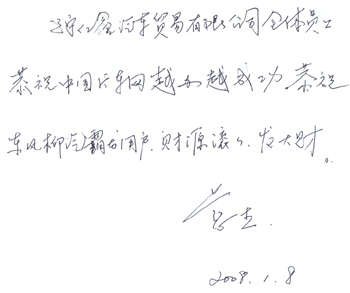 汽车贸易有限公司全体员工
恭祝中国汽车网越办越成功 恭祝
东风柳汽霸龙用户,财源滚々、发大财。
2008.1.8